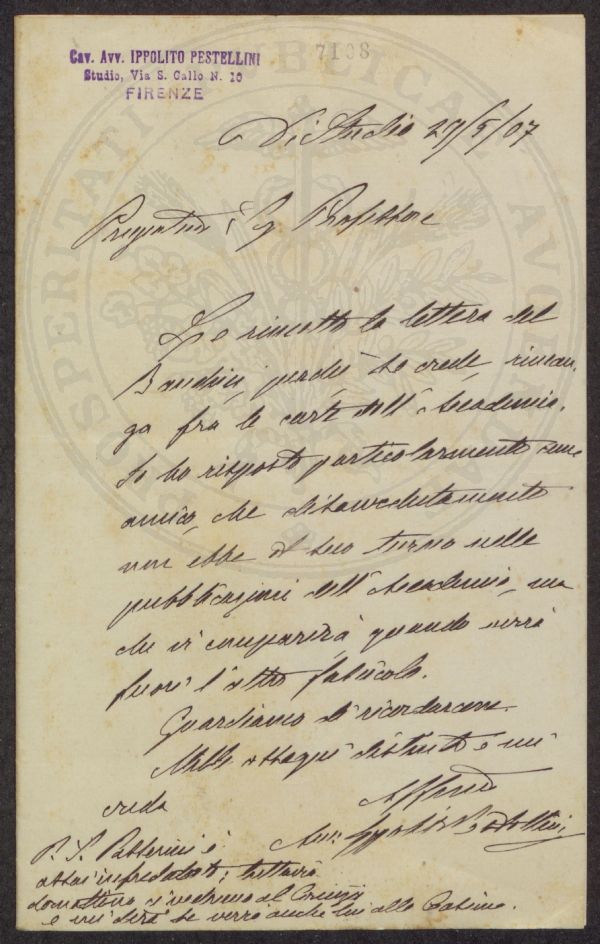 Cav. Avv. IPPOLITO PESTELLINI
Studio, Via S. Gallo N. 10
FIRENZE
7108
PROSPERITATI PUBLICAE
Di Studio 27/5/07
Professore
Le rimetto la lettera del
perché se crede riman-
ga fra le carte dell'Accademia.
Io ho risposto particolarmente come
amico, che disavvedutamente
non ebbe il suo turno nelle
pubblicazioni dell'Accademia, ma
che vi comparirà quando verrà
fuori l'altro fascicolo.
Guardiamo di ricordarcene
Mille ossequi distinti e mi
creda
Affmo
Avv: Ippolito Pestellini
P. S. Passerini è
assai infreddato; tuttavia
domattina ci vedremo al
e mi dirà se verrà anche lui alle Cascine.